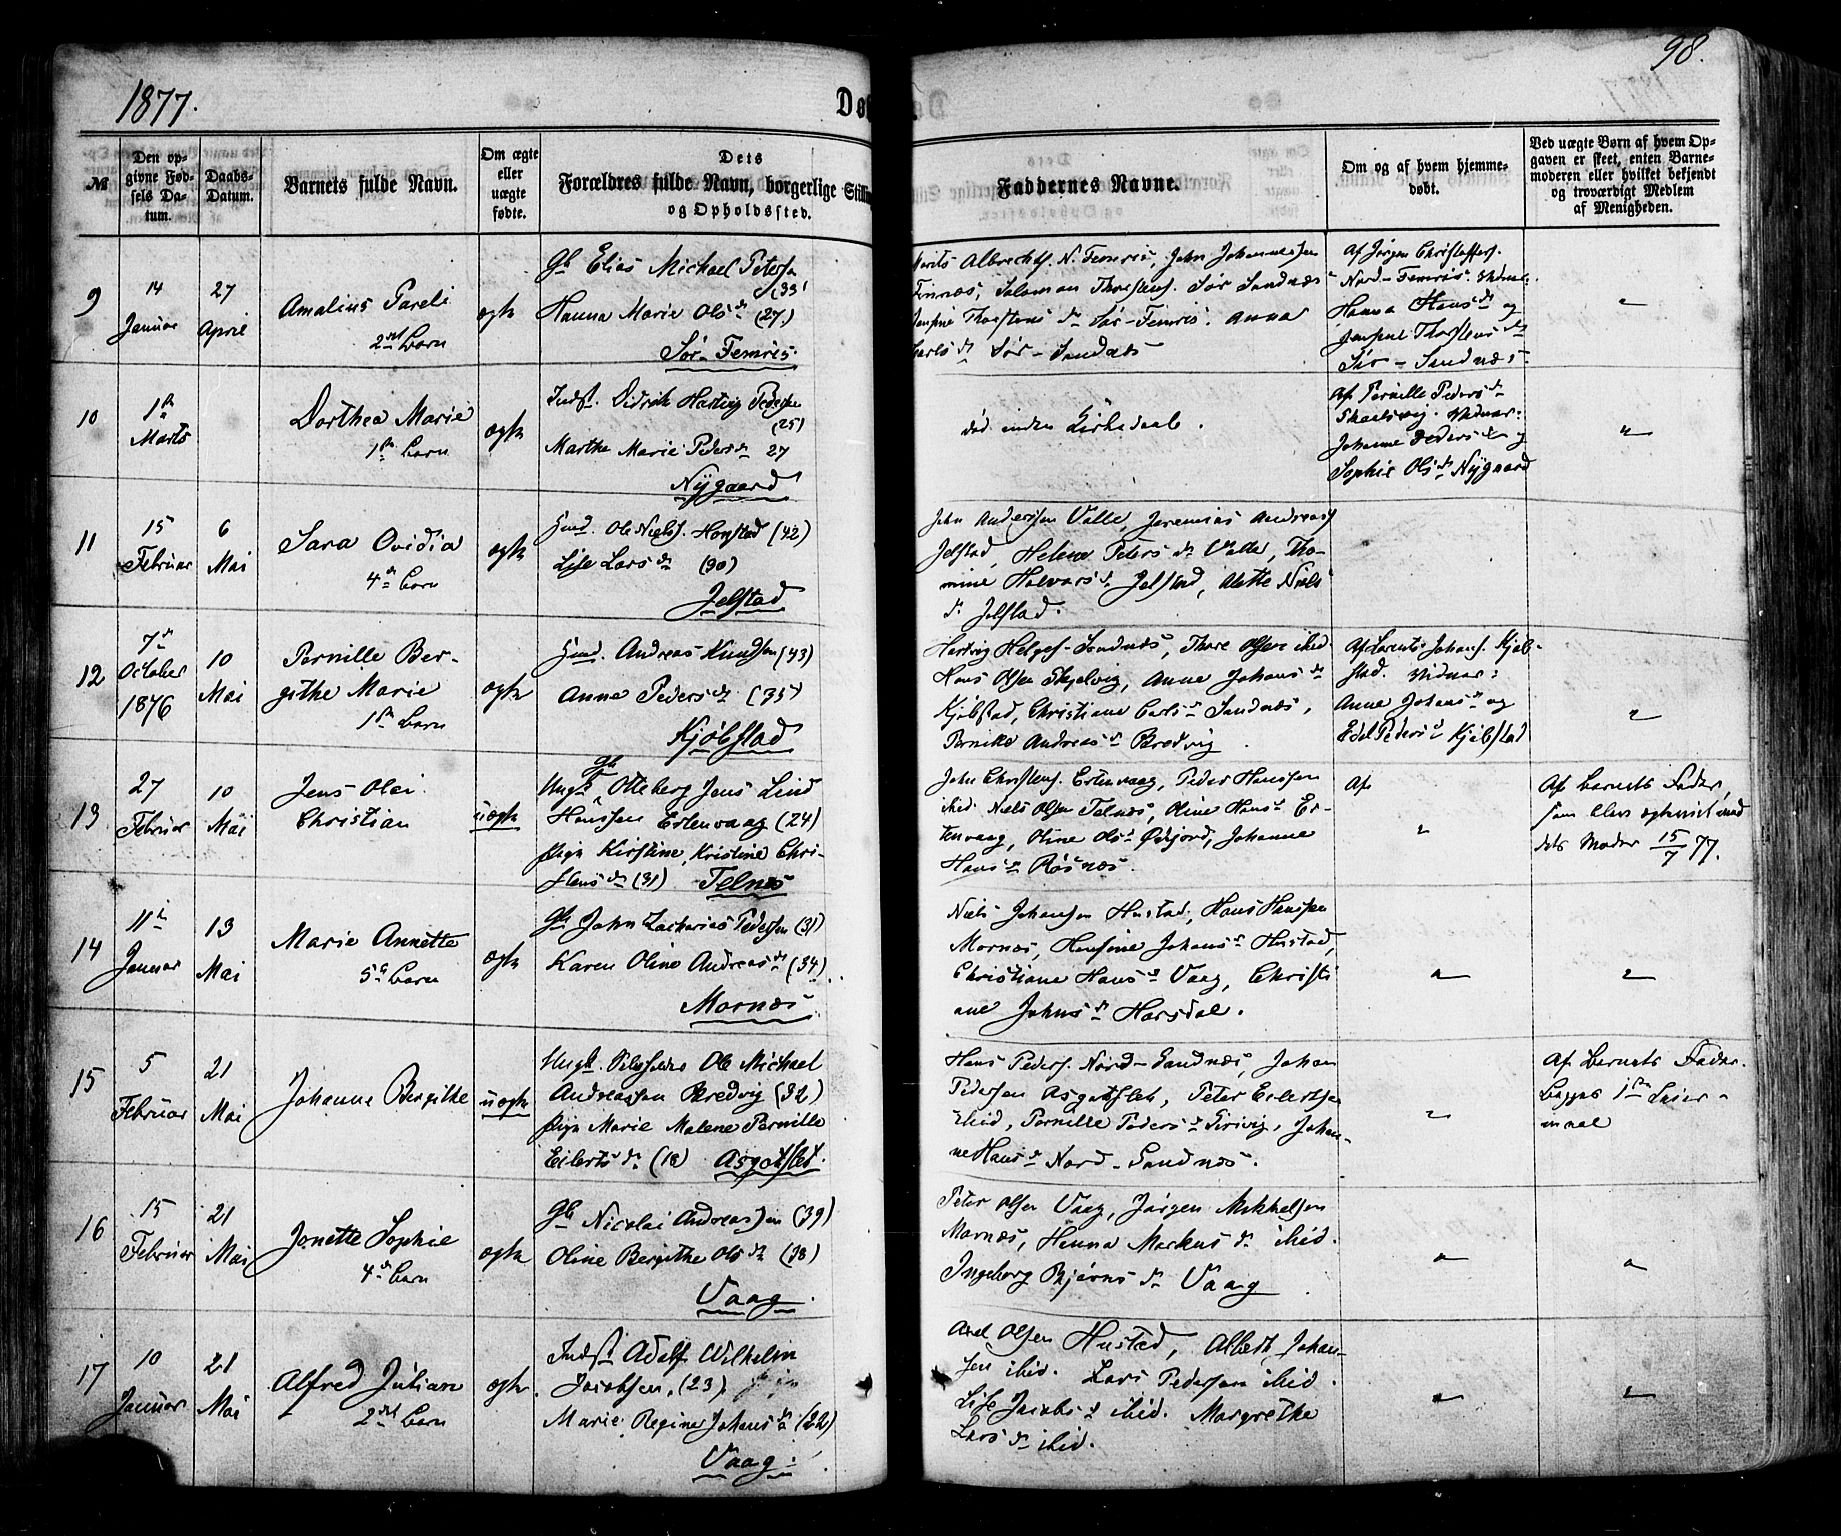 1877.
98.
Dø
№
Den op-
givne Fød-
sels Da-
tum.
Daabs-
Datum.
Barnets fulde Navn.
Om ægte
eller
uægte
fødte.
Dets
Forældres fulde Navn, borgerlige Still
og Opholdssted.
Faddernes Navne.
Om og af hvem hjemme-
døbt.
Ved uægte Børn af hvem Op-
gaven er skeet, enten Barne-
moderen eller hvilket bekjendt
og troværdigt Medlem
af Menigheden.
9
14
Januar
27
April
Amalius Pareli
2det Barn
ægte
Gb Elias Michael Petersen
(33)
Hanna Marie Olsdr (27)
Sør-Femris.
Albrechts. N. Femris, John Johannessen
Finnæs, Salomon Thorstens. Sør Sandnæs
Thorstens dr Sør-Femris. Anna
Carls dr Sør-Sandnæs
Af Jørgen Christoffers.
Nord-Femris. Vidner:
Hanna Hans dr og
Thorstens dr
Sør-Sandnæs.
"
10
1ste
Marts
Dorthea Marie
1ste Barn
ægte
Indst. Didrik Hartvig Pedersen
(25)
Marthe Marie Peders dr 27
Nygaard
død inden Kirkedaab.
Af Pernille Peders dr
Skaalsvig. Vidner:
Johanne Peders dr og
Sophie Ols dr Nygaard
"
11
15
Februar
6
Mai
Sara Ovidia
4de Barn
ægte
Gmd. Ole Niels. Honstad (42)
Lise Lars dr (30)
Jelstad
John Anderssen Valle, Jeremias Andreas
Jelstad, Helene Peters dr Valle, Tho-
mine Halvors dr Jelstad, Alette Niels
dr Jelstad.
12
7de
October
1876
10
Mai
Pernille Ber-
githe Marie
1ste Barn
ægte
Gmd. Andreas Knudsen (43)
Anne Peders dr (35)
Kjøbstad
Hartvig Helges. Sandnæs, Thore Olsen ibid
Hans Olsen Skjelvig, Anne Johans dr
Kjøbstad, Christiane Carls dr Sandnæs,
Pernike Andreas dr Bredvig.
Af Lorents Johans. Kjøb-
stad. Vidner:
Anne Johans dr og
Edel Peders dr Kjøbstad
"
13
27
Februar
10
Mai
Jens Olai
Christian
uægte
Gb
Ungk Otteberg Jens Lind
Hanssen Ertenvaag (24)
Pige Kirstine, Kristine Chri-
stens dr (31) Telnæs
John Christens. Ertenvaag, Peder Hanssen
ibid. Niels Olsen Telnæs, Oline Hans dr Er-
tenvaag, Oline Ols dr Øxfjord, Johanne
Hans dr Røsnæs.
Af
"
Af Barnets Fader,
som blev ægteviet med
dets Moder 15/7 77.
14
11te
Januar
13
Mai
Marie Annette
5te Barn
ægte
Gb John Zacharias Pedersen (31)
Karen Oline Andreas dr (34).
Mornæs
Niels Johansen Hustad, Hans Hanssen
Mornæs, Hansine Johans dr Hustad,
Christiane Hans dr Vaag, Christi
ane Johns dr Horsdal.
"
"
15
5
Februar
21
Mai
Johanne Bergithe
uægte
Ungk. Ole Michael
Andreassen Bredvig (32)
Pige Marie Malene Pernille
Eilerts dr (18) Asgotslet.
Hans Peders. Nord-Sandnæs, Johan
Pedersen Asgotslet, Peter Eilertsen
ibid, Pernille Peders dr Seivig, Johan-
ne Hans dr Nord-Sandnæs.
"
Af Barnets Fader.
Begges 1ste Leier-
maal
16
15
Februar
21
Mai
Jonette Sophie
4de Barn
ægte
Gb Nicolai Andreassen (39)
Oline Bergithe Ols dr (38)
Vaag.
Peter Olsen Vaag, Jørgen Mikkelsen
Mornæs, Hanna Markus dr ibid.
Ingeborg Bjørns dr Vaag
"
"
17
10
Januar
21
Mai
Alfred Julian
2det Barn
ægte.
Indst Adolf Wilhelm
Jacobsen, (23),
Marie Regine Johans dr (22)
Vaag.
Axel Olsen Hustad, Albert Johan-
sen ibid. Lars Pedersen ibid.
Lise Jacobs dr ibid. Margrethe
Lars dr ibid.
"
"